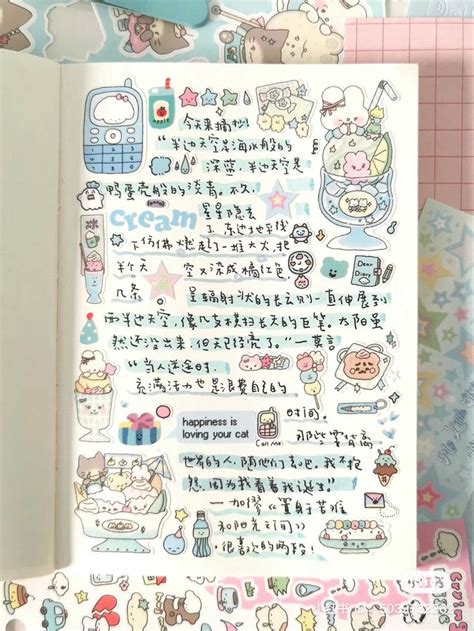 apple
今天来摘抄!
“半边天空是海水般的
深蓝，半边天空是
鸭蛋壳般的淡青。不久，
Cream
星星隐去
了，东边地平线
下仿佛燃起了一堆大火，把
半个天
空又染成橘红色，
Dear
Diary
几条
呈辐射状的长云则一直伸展到
西半边天空，像几支横扫长天的巨笔。太阳虽
然还没出来，但天已经亮了。”—莫言
“当人迷途时，
充满活力也是浪费自己的
happiness is
loving your cat
Call Me
时间。
那些要背离
世界的人，随他们去吧。我不抱
怨，因为我看着我诞生”
—加缪《置身苦难
和阳光之间》
·很喜欢的两段!